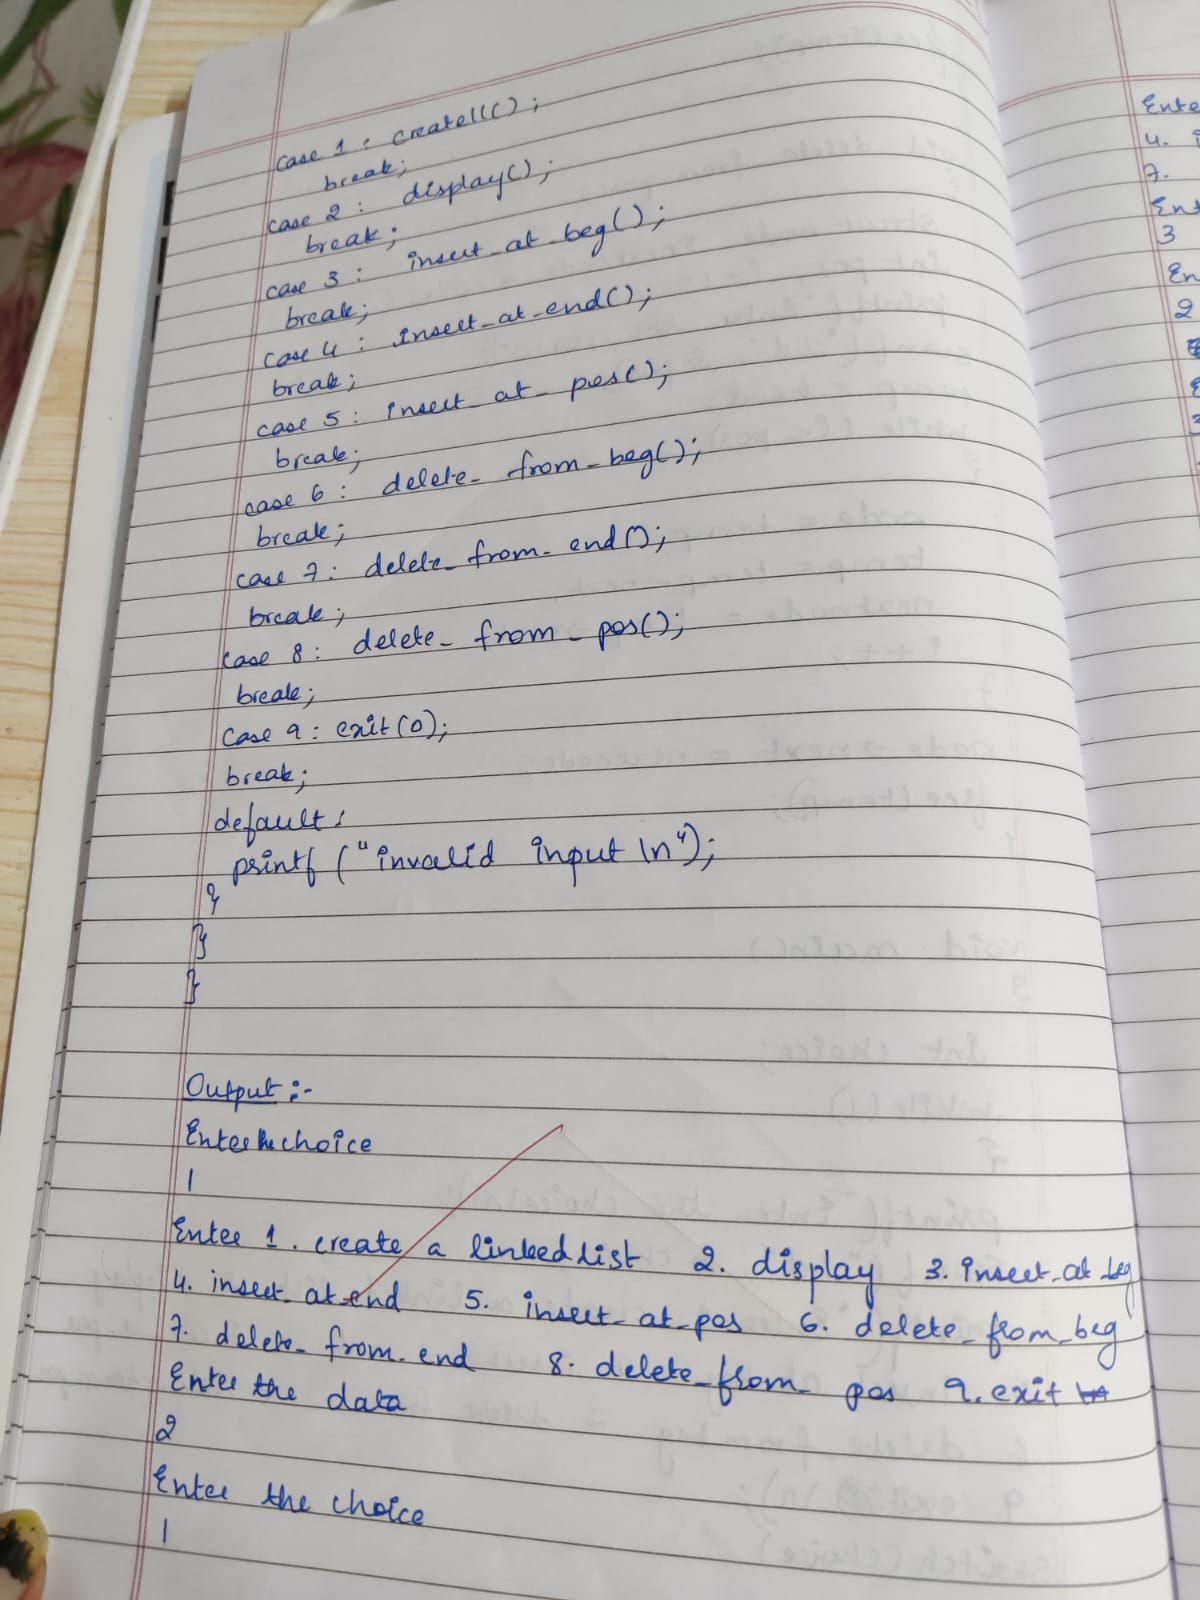 case 1 : createll();
break;
case 2 : display();
break;
case 3 : insert_at_beg();
break;
case 4 : insert_at_end();
break;
case 5 : insert_at_pos();
break;
case 6 : delete_from_beg();
break;
case 7 : delete_from_end();
break;
case 8 : delete_from_pos();
break;
case 9 : exit(0);
break;
default :
printf ("invalid input \n");
}
}
}
Output :-
Enter the choice
1
Enter 1. create a linked list 2. display 3. insert_at_beg
4. insert_at_end 5. insert_at_pos 6. delete_from_beg
7. delete_from_end 8. delete_from_pos 9. exit
Enter the data
2
Enter the choice
1
Ente
4. i
7.
Ent
3
En
2